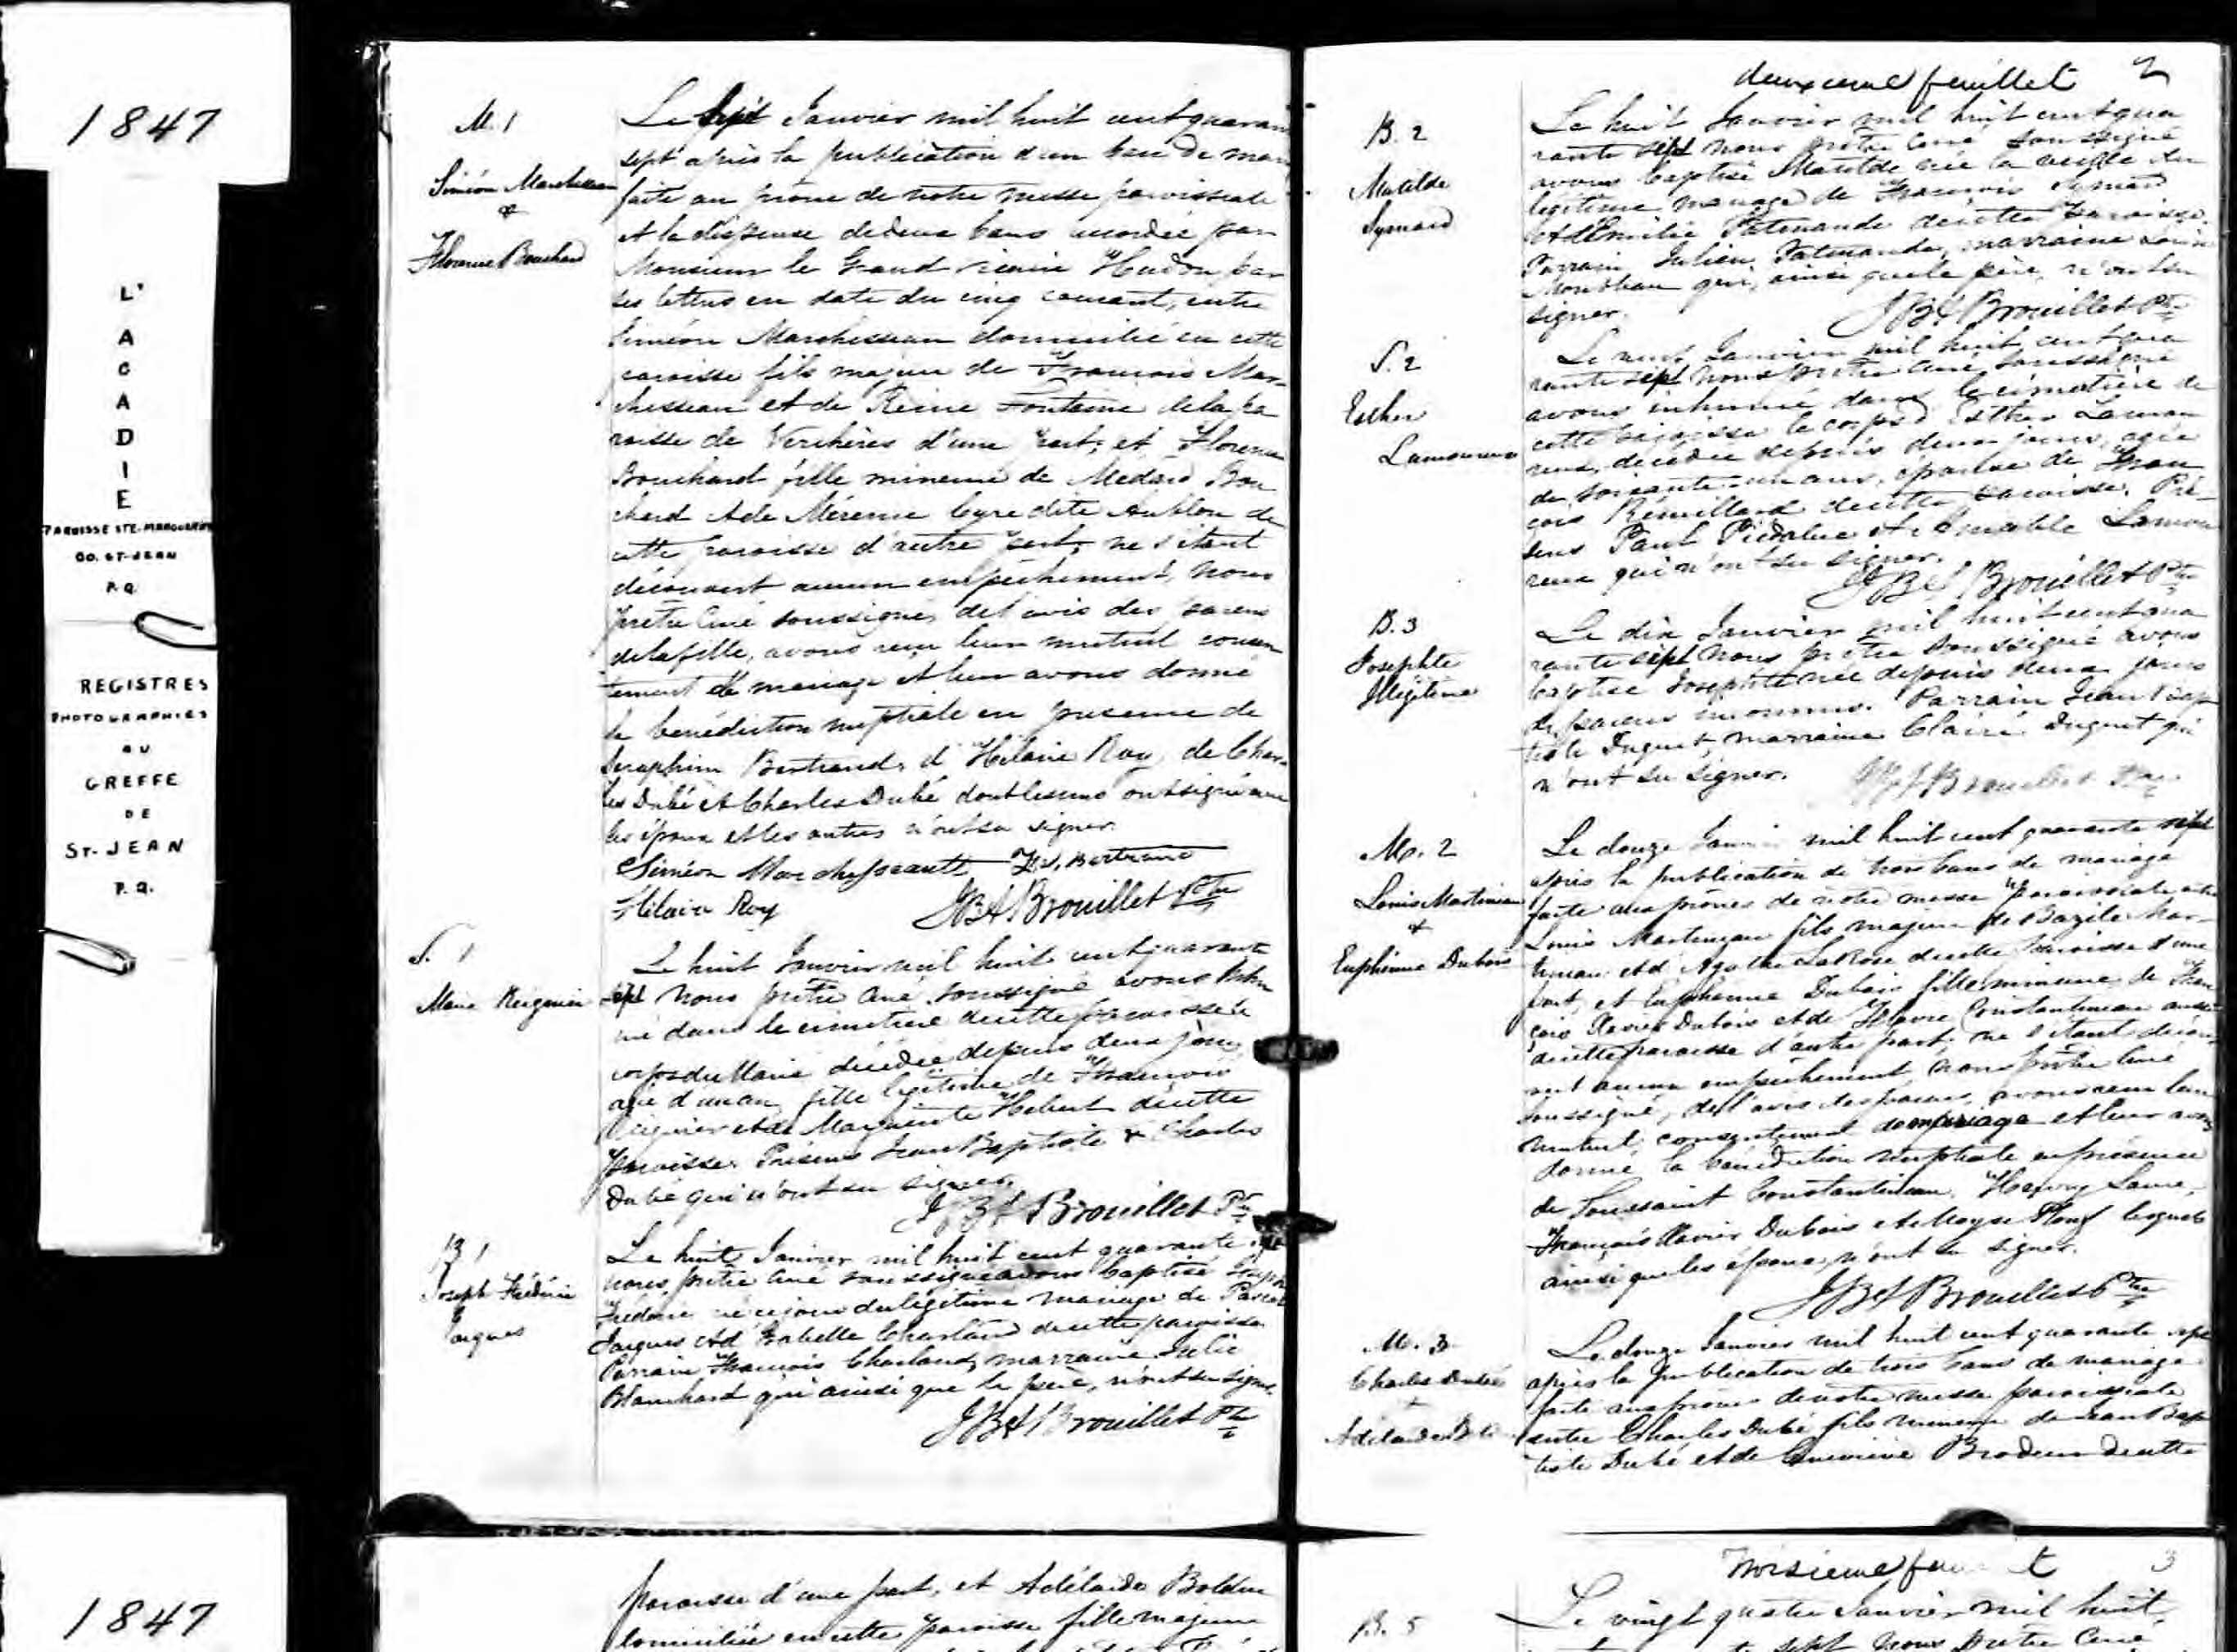 1847
L'
A
C
A
D
I
E
PAROISSE STE. MARGUERITE
CO. ST-JEAN
P.Q.
REGISTRES
PHOTOGRAPHIÉS
AU
GREFFE
DE
ST-JEAN
P.Q.
1847
M. 1
Siméon Marchesseau
&
Florence Bouchard
Le sept Janvier mil huit cent quaran
sept après la publication d'un ban de mari
faite au prône de notre messe paroissiale
et la dispense de deux bans accordée par
Monsieur le Grand vicaire Hudon par
ses lettres en date du cinq courant, entre
Siméon Marchesseau domicilié en cette
paroisse fils majeur de François Mar-
chesseau et de Reine Fontaine de la pa
roisse de Verchères d'une part; et Florence
Bouchard fille mineure de Medard Bou
chard et de Cyre dite de
cette paroisse d'autre part; ne s'étant
découvert aucun empêchement, nous
prêtre Curé soussigné, de l'avis des parens
de la fille, avons reçu leur mutuel consen
tement de mariage et leur avons donné
la bénédiction nuptiale en présence de
Seraphim Bertrand, d'Hilaire Roy, de Char-
les Dubé et Charles Dubé dont les uns ont signé avec
les époux et les autres n'ont su signer.
Siméon Marchessault Bertrand
Hilaire Roy JBA Brouillet Ptre
S. 1
Marie
Le huit Janvier mil huit cent quarante
sept nous prêtre Curé soussigné avons inhu
mé dans le cimetière de cette paroisse le
corps de Marie décédée depuis deux jours
agée d'un an fille légitime de François
et de Marguerite Hebert de cette
paroisse. Présens Jean Baptiste & Charles
Dubé qui n'ont su signer.
JBA Brouillet Ptre
B 1
Joseph Fréderic
Jaques
Le huit Janvier mil huit cent quarante sept
nous, prêtre Curé soussigné avons baptisé Joseph
Fréderic né ce jour du légitime mariage de Pascal
Jaques et d'Isabelle Charland de cette paroisse.
Parrain François Charland, marraine Julie
Blanchard qui ainsi que le père, n'ont su signer.
JBA Brouillet Ptre
deuxieme feuillet 2
B. 2
Matilde
Symard
Le huit Janvier mil huit cent qua
rante sept nous prêtre Curé soussigné
avons baptisé Matilde née la veille du
légitime mariage de François Symard
et d'Emilie Patenaude de cette paroisse.
Parrain Julien Patenaude, marraine Louise
qui, ainsi que le père, n'ont su
signer.
JBA Brouillet Ptre
S. 2
Esther
Lamoureux
Le neuf Janvier mil huit cent qua
rante sept nous prêtre Curé soussigné
avons inhumé dans le cimetière de
cette paroisse le corps d'Esther Lamou
reux, décédée depuis deux jours, agée
de soixante-un ans, epouse de Fran
çois Remillard de cette paroisse. Pré-
sens Paul Piédalue et Amable Lamou
reux qui n'ont su signer.
JBA Brouillet Ptre
B. 3
Josephte
Illégitime
Le dix Janvier mil huit cent qua
rante sept nous prêtre soussigné avons
baptisé Josephte née depuis deux jours
de parens inconnus. Parrain Jean Bap
tiste Duquet, marraine Claire Duquet qui
n'ont su signer.
JBA Brouillet Ptre
M. 2
Louis Martineau
&
Euphémie Dubois
Le douze Janvier mil huit cent quarante sept
après la publication de trois bans de mariage
faite aux prônes de notre messe paroissiale entre
Louis Martineau fils majeur de Bazile Mar-
tineau et d'Agathe LaRose de cette paroisse d'une
part, et Euphémie Dubois fille mineure de Fran
çois Xavier Dubois et de Constantineau aussi
de cette paroisse d'autre part; ne s'étant décou-
vert aucun empêchement, nous prêtre Curé
soussigné, de l'avis des parens, avons reçu leur
mutuel consentement de mariage et leur avons
donné la bénédiction nuptiale en présence
de Toussaint Constantineau,
François Xavier Dubois et Moyse Plouf lesquels
ainsi que les époux, n'ont su signer.
JBA Brouillet Ptre
M. 3
Charles Dubé
&
Adélaide
Le douze Janvier mil huit cent quarante sept
après la publication de trois bans de mariage
faite aux prônes de notre messe paroissiale
entre Charles Dubé fils mineur de Jean Bap
tiste Dubé et de Geneviève Brodeur de cette
paroisse d'une part, et Adélaïde Bolduc
domiciliée en cette paroisse fille majeure
troisieme feuillet 3
B. 5
Le vingt quatre Janvier mil huit
sept nous prêtre Curé